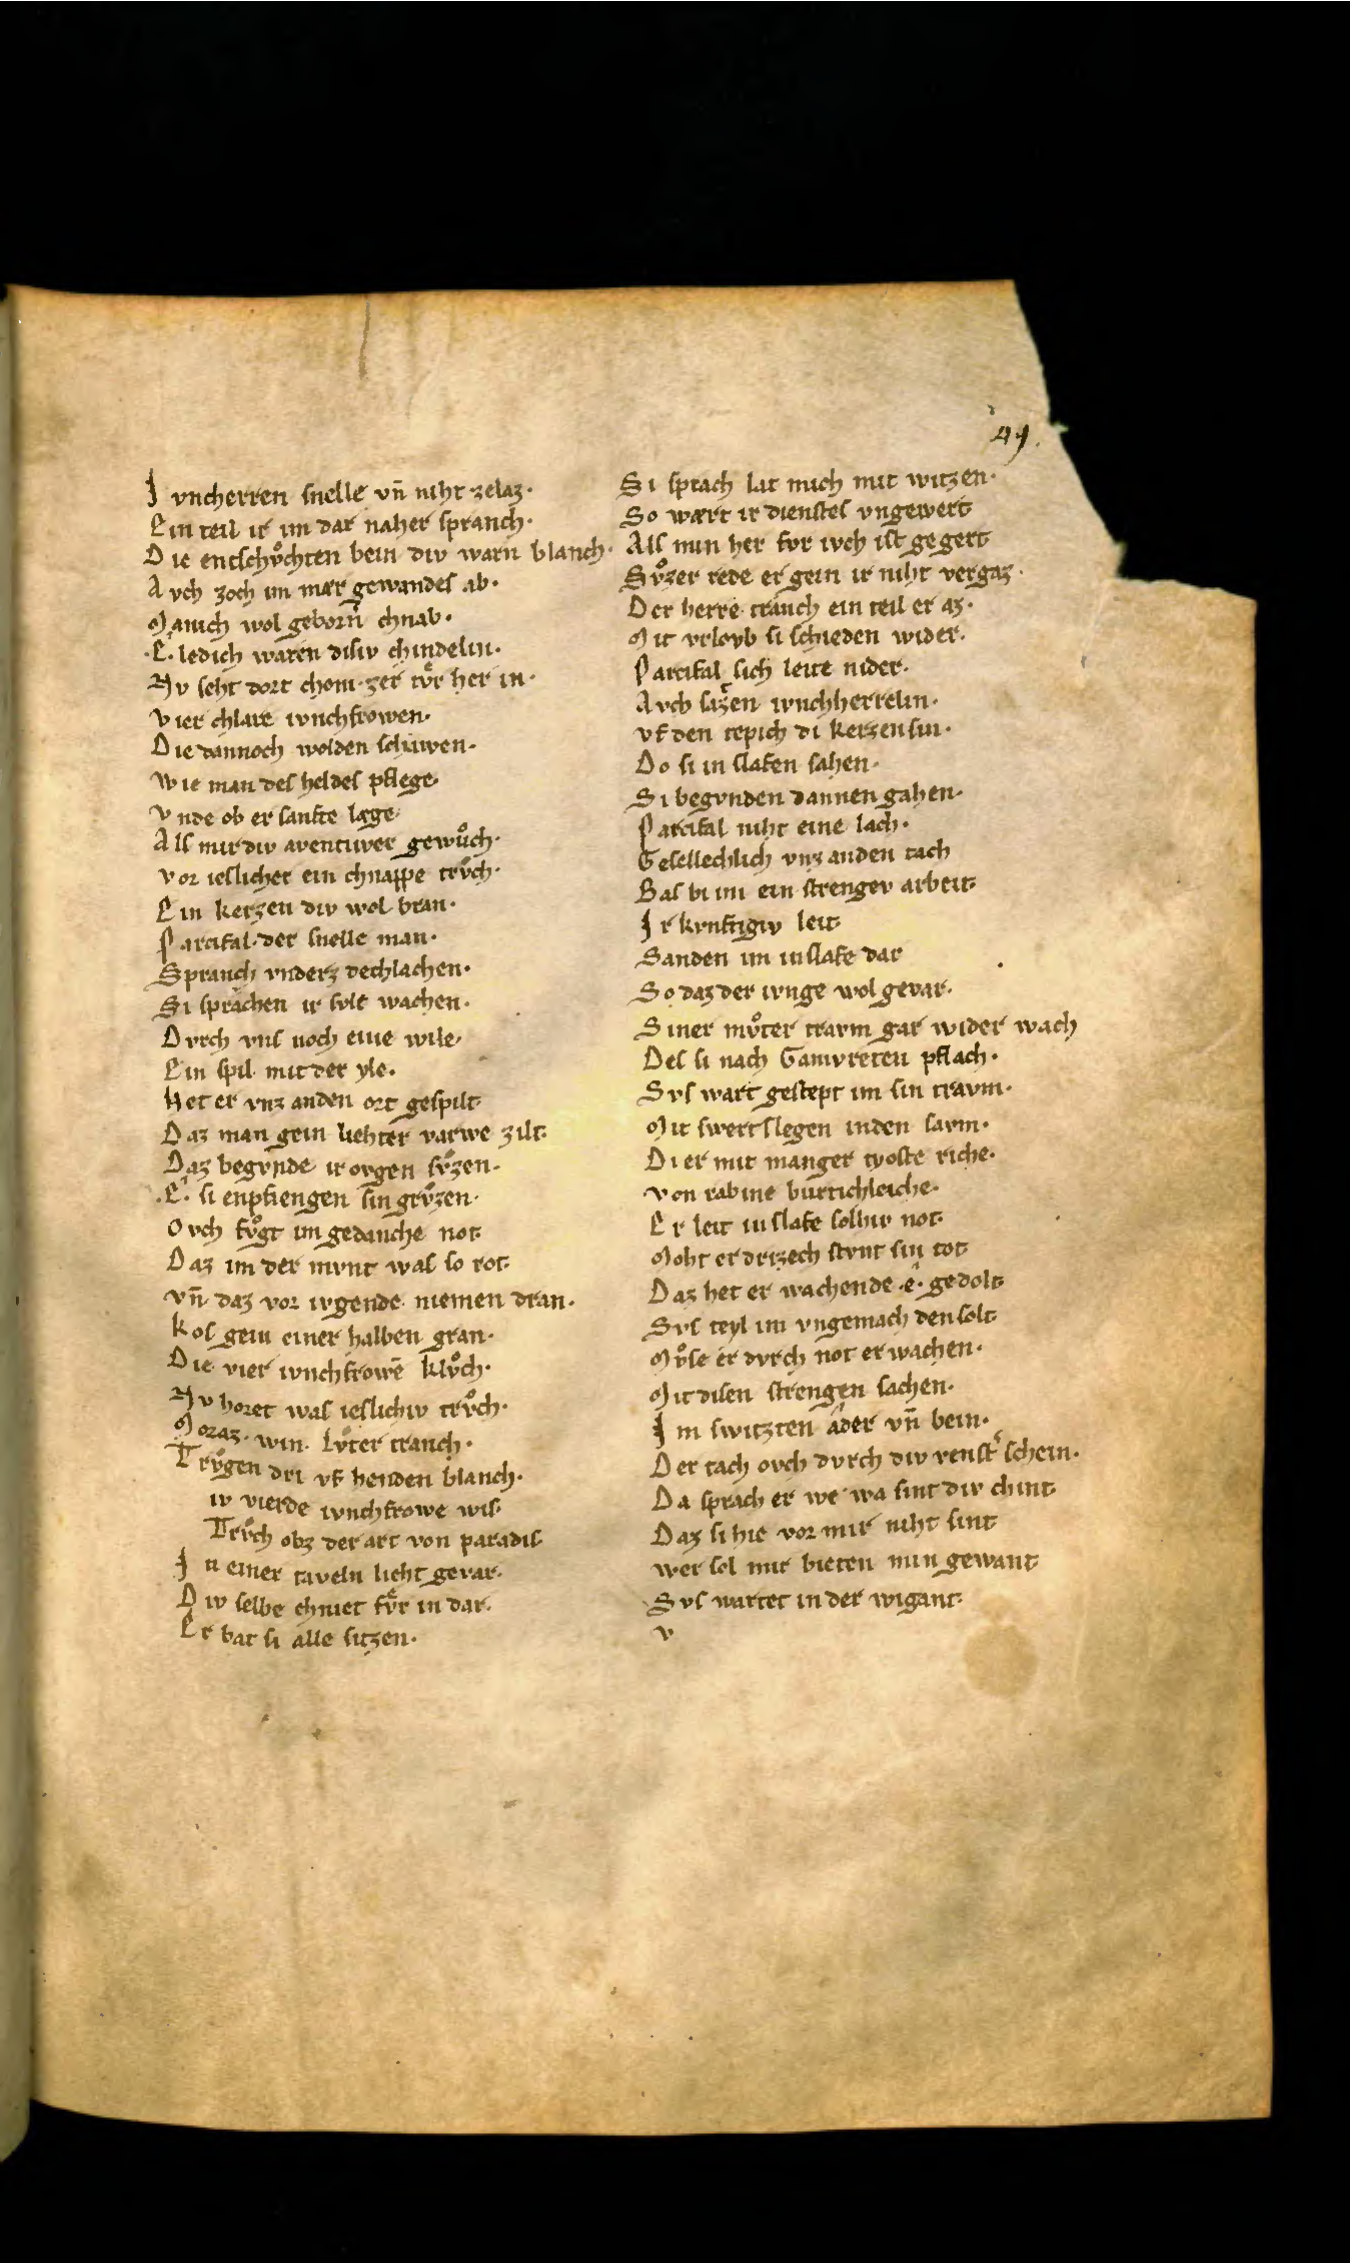 49.
J vncherren snelle vn̄ niht zelaz·
Ein teil ir im dar naher spranch·
Die entschvͦchten bein div warn blanch·
Avch zoch im mær gewandes ab·
Manich wol geborn̄ chnab·
·E· ledich waren disiv chindelin·
Nv seht dort chom zer tvͤr her in·
Vier chlare ivnchfrowen·
Die dannoch wolden schawen·
Wie man des heldes pflege
Vnde ob er sanfte læge
Als mir div aventiver gewuͦch·
Vor ieslicher ein chnappe trvͦch·
Ein kerzen div wol bran·
Parcifal der snelle man·
Spranch vnderz dechlachen·
Si sprachen ir svlt wachen·
Dvrch vns noch eine wile·
Ein spil mit der yle·
Het er vnz anden ort gespilt
Daz man gein liehter varwe zilt·
Daz begvnde ir ovgen svͦzen·
·E· si enpfiengen sin grvͦzen·
Ovch fvͦgt im gedanche not
Daz im der mvnt was so rot
Vn̄ daz vor ivgende niemen dran·
Kos gein einer halben gran·
Die vier ivnchfrowē klvͦch·
Nv horet was ieslichiv trvͦch·
Moraz· win· lvͦter tranch·
Trvͦgen dri vf henden blanch·
iv vierde ivnchfrowe wis
Trvͦch obz der art von paradis
Jn einer taveln lieht gevar·
Div selbe chniet fvͤr in dar·
Er bat si alle sitzen·
Si sprach lat mich mit witzen·
So wært ir dienstes vngewert
Als min her fvr ivch ist gegert
Svͦzer rede er gein ir niht vergaz·
Der herre tranch ein teil er az·
Mit vrlovb si schieden wider·
Parcifal sich leite nider·
Avch sazen ivnchherrelin·
Vf den tepich di kerzen sin·
Do si in slafen sahen·
Si begvnden dannen gahen·
Parcifal niht eine lach·
Gesellechlich vnz anden tach
Bas bi im ein strengev arbeit
Jr kvnftigiv leit
Sanden im in slafe dar
So daz der ivnge wol gevar·
Siner mvͦter travm gar wider wach
Des si nach Gamvreten pflach·
Svs wart gestept im sin travm·
Mit swertslegen inden savm·
Di er mit manger tyoste riche·
Von rabine burtichleiche·
Er leit in slafe solhiv not
Moht er drizech stvnt sin tot
Daz het er wachende ·e· gedolt
Svs teyl im vngemach den solt
Mvͦse er dvrch not erwachen·
Mit disen strengen sachen·
Jm switzten ader vn̄ bein·
Der tach ovch dvrch div venst' schein·
Da sprach er we wa sint div chint
Daz si hie vor mir niht sint
Wer sol mir bieten min gewant
Svs wartet in der wigant
v